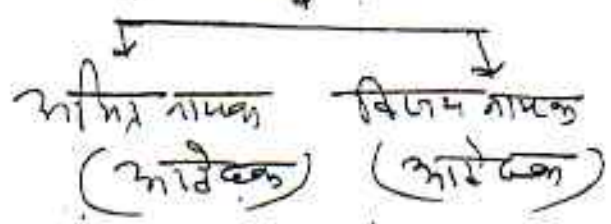 अमित नायक विजय नायक
(आवेदक) (आवेदक)